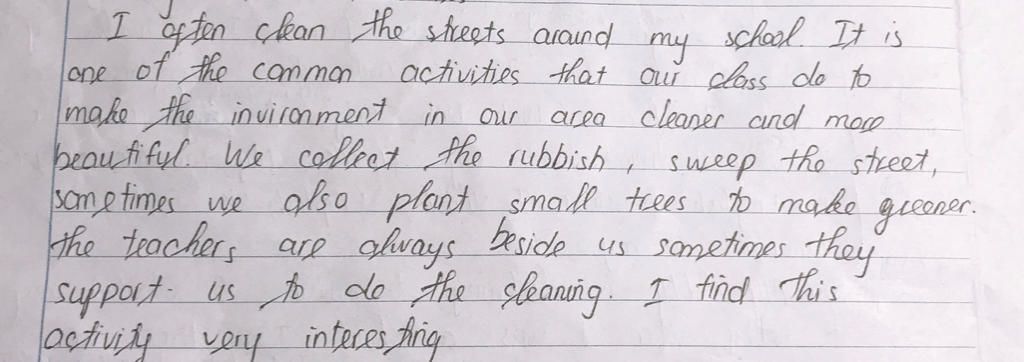 I often clean the streets around my school. It is
one of the common activities that our class do to
make the invironment in our area cleaner and more
beautiful. We collect the rubbish, sweep the street,
sometimes we also plant small trees to make greener.
the teachers are always beside us sometimes they
support us to do the cleaning. I find this
activity very interesting